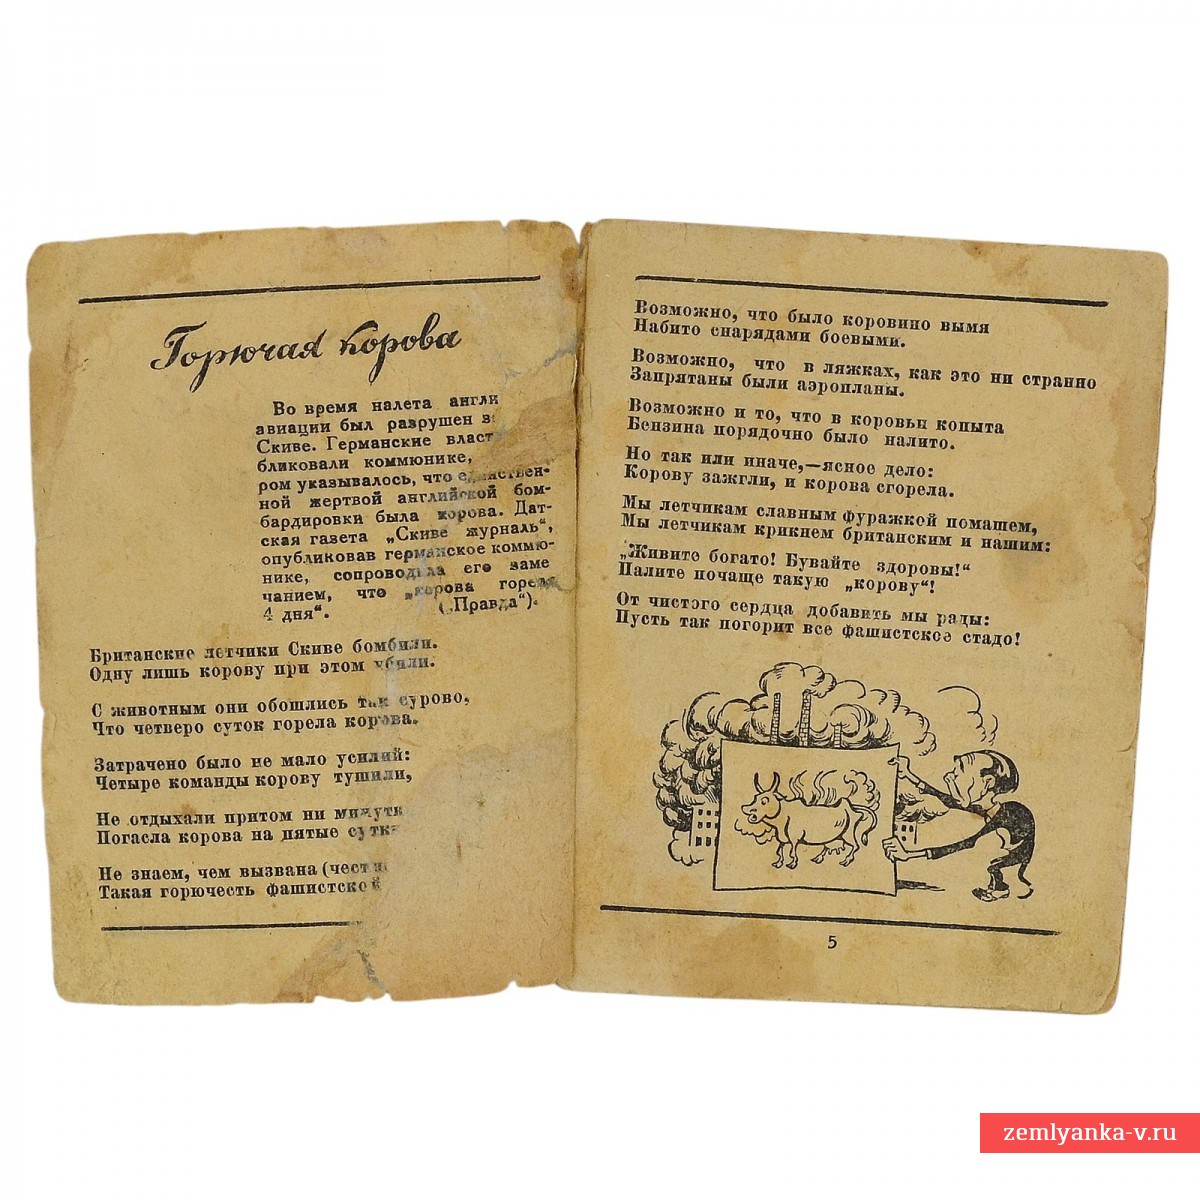 Горючая корова
Во время налета англи
авиации был разрушен
Скиве. Германские власт
бликовали коммюнике,
ром указывалось, что единствен-
ной жертвой английской бом-
бардировки была корова. Дат-
ская газета „Скиве журналь“,
опубликовав германское коммю-
нике, сопроводила его заме
чанием, что „корова горела
4 дня“. („Правда“).
Британские летчики Скиве бомбили.
Одну лишь корову при этом убили.
С животным они обошлись так сурово,
Что четверо суток горела корова.
Затрачено было не мало усилий:
Четыре команды корову тушили,
Не отдыхали притом ни минутк
Погасла корова на пятые сутк
Не знаем, чем вызвана (чест
Такая горючесть фашистской
Возможно, что было коровино вымя
Набито снарядами боевыми.
Возможно, что в ляжках, как это ни странно
Запрятаны были аэропланы.
Возможно и то, что в коровьи копыта
Бензина порядочно было налито.
Но так или иначе,—ясное дело:
Корову зажгли, и корова сгорела.
Мы летчикам славным фуражкой помашем,
Мы летчикам крикнем британским и нашим:
„Живите богато! Бувайте здоровы!“
Палите почаще такую „корову“!
От чистого сердца добавить мы рады:
Пусть так погорит все фашистское стадо!
5
zemlyanka-v.ru